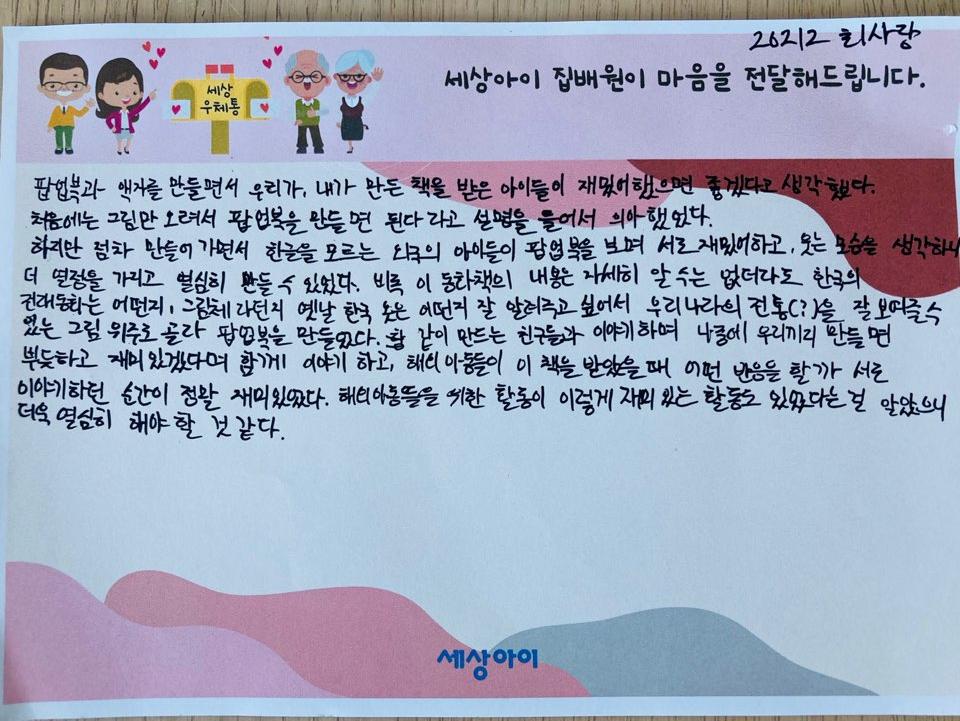 20212 최사랑
세상아이 집배원이 마음을 전달해드립니다.
세상
우체통
팝업북과 액자를 만들면서 우리가, 내가 만든 책을 받은 아이들이 재밌어했으면 좋겠다고 생각했다.
처음에는 그림만 오려서 팝업북을 만들면 된다 라고 설명을 들어서 의아했었다.
하지만 점차 만들어가면서 한글을 모르는 외국의 아이들이 팝업북을 보며 서로 재밌어하고, 웃는 모습을 생각하니
더 열정을 가지고 열심히 만들 수 있었다. 비록 이 동화책의 내용은 자세히 알 수는 없더라도 한국의
전래동화는 어떤지, 그림체라던지 옛날 한국 옷은 어떤지 잘 알려주고 싶어서 우리나라의 전통(?)을 잘 보여줄 수
있는 그림 위주로 골라 팝업북을 만들었다. 같이 만드는 친구들과 이야기하며 나중에 우리끼리 만들면
뿌듯하고 재미있겠다며 함께 이야기 하고, 해외아동들이 이 책을 받았을 때 어떤 반응을 할까 서로
이야기하던 순간이 정말 재미있었다. 해외아동들을 위한 활동이 이렇게 재미 있는 활동도 있었다는 걸 알았으니
더욱 열심히 해야 할 것 같다.
세상아이